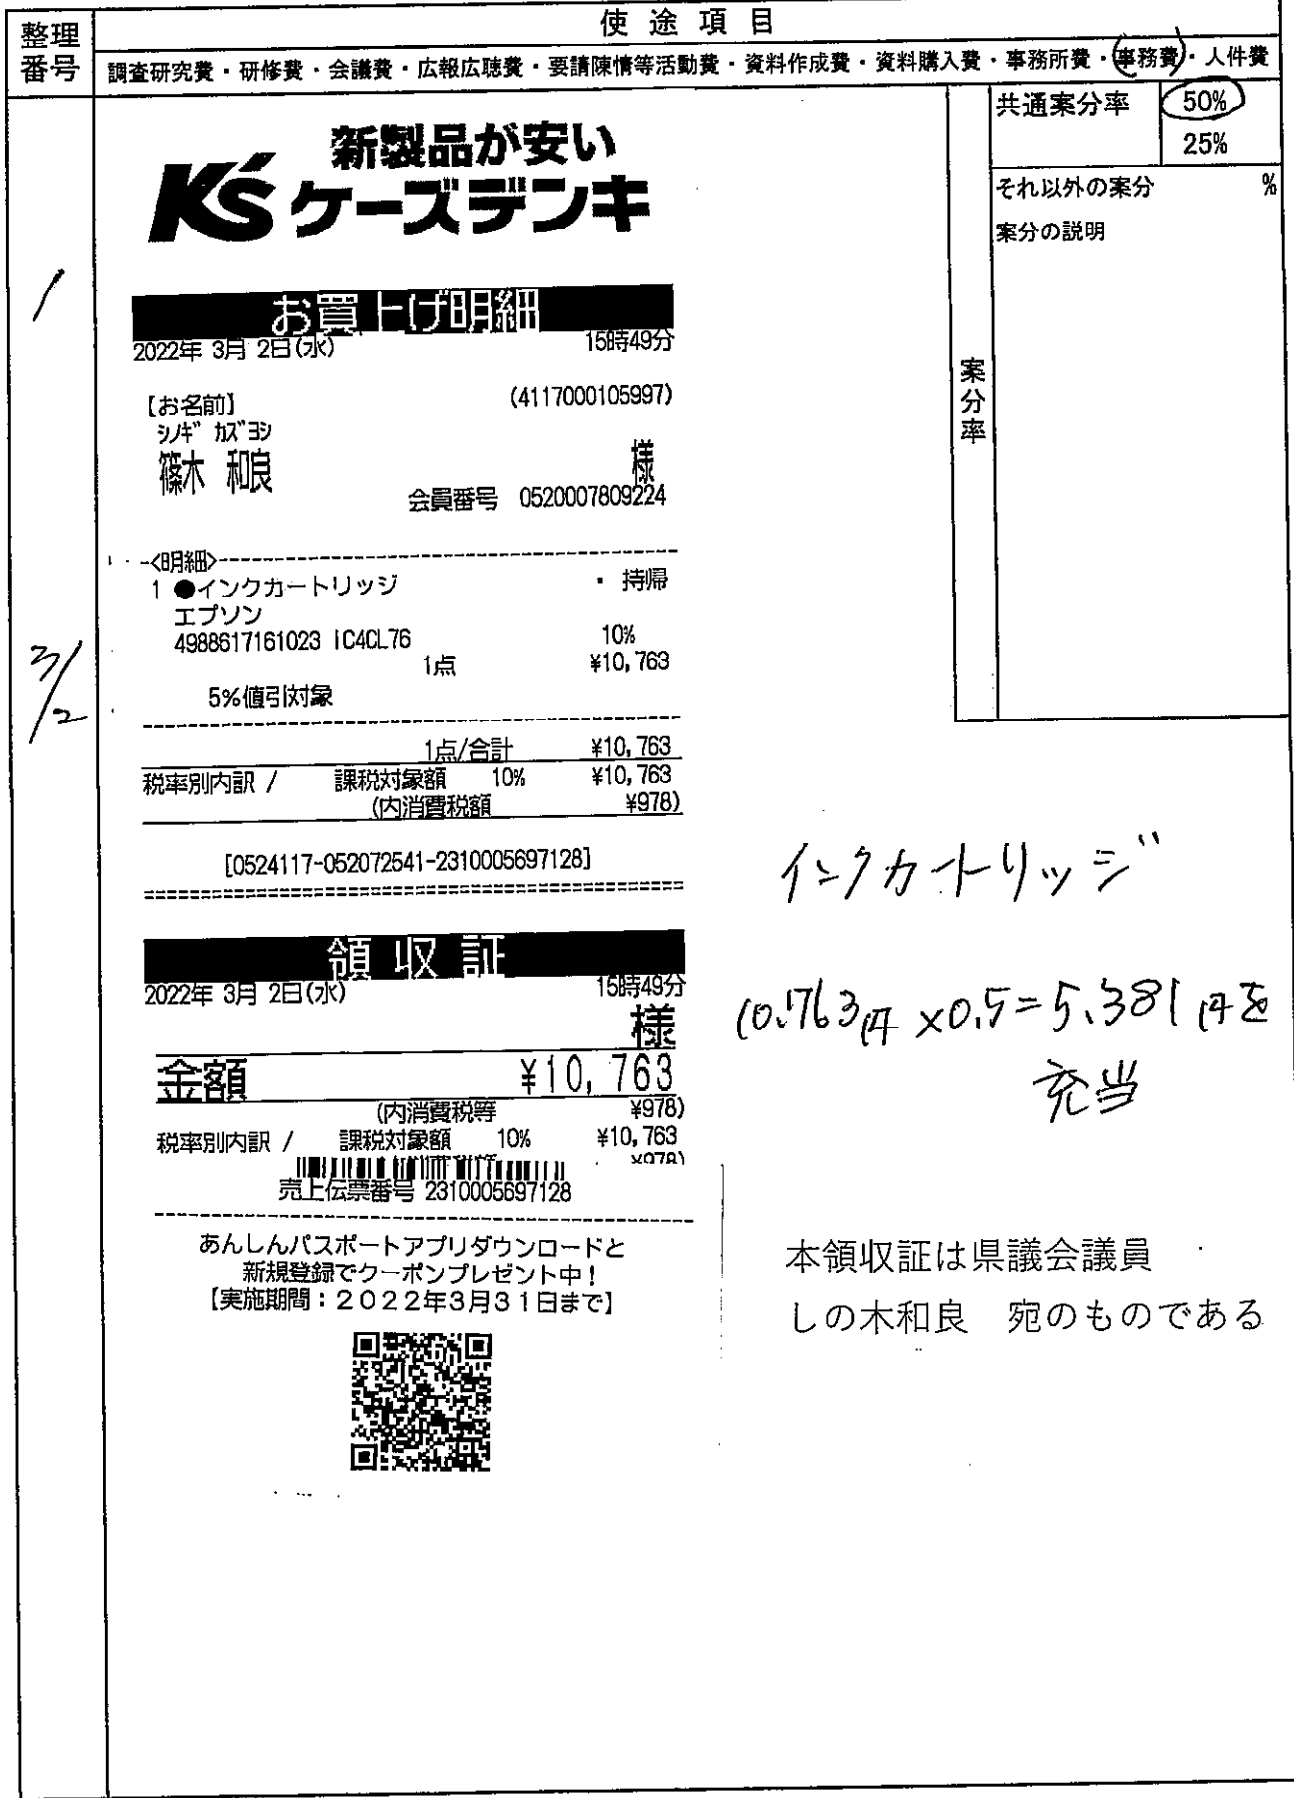 整理
番号
使途項目
調査研究費・研修費・会議費・広報広聴費・要請陳情等活動費・資料作成費・資料購入費・事務所費・事務費・人件費
1
3/2
共通案分率
50%
25%
それ以外の案分 %
案分の説明
案分率
新製品が安い
K'sケーズデンキ
お買上げ明細
2022年 3月 2日(水) 15時49分
【お名前】 (4117000105997)
シノギ カズヨシ
篠木 和良 様
会員番号 0520007809224
<明細>
1 ●インクカートリッジ ・ 持帰
エプソン
4988617161023 IC4CL76 10%
1点 ¥10,763
5%値引対象
1点/合計 ¥10,763
税率別内訳 / 課税対象額 10% ¥10,763
(内消費税額 ¥978)
[0524117-052072541-2310005697128]
領収証
2022年 3月 2日(水) 15時49分
様
金額 ¥10,763
(内消費税等 ¥978)
税率別内訳 / 課税対象額 10% ¥10,763
¥978)
売上伝票番号 2310005697128
あんしんパスポートアプリダウンロードと
新規登録でクーポンプレゼント中!
【実施期間:2022年3月31日まで】
インクカートリッジ
10.763円×0.5=5.381円を
充当
本領収証は県議会議員
しの木和良 宛のものである